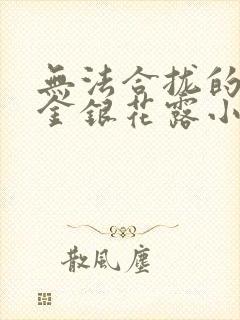 無法合拢的
金銀花露小
散風塵